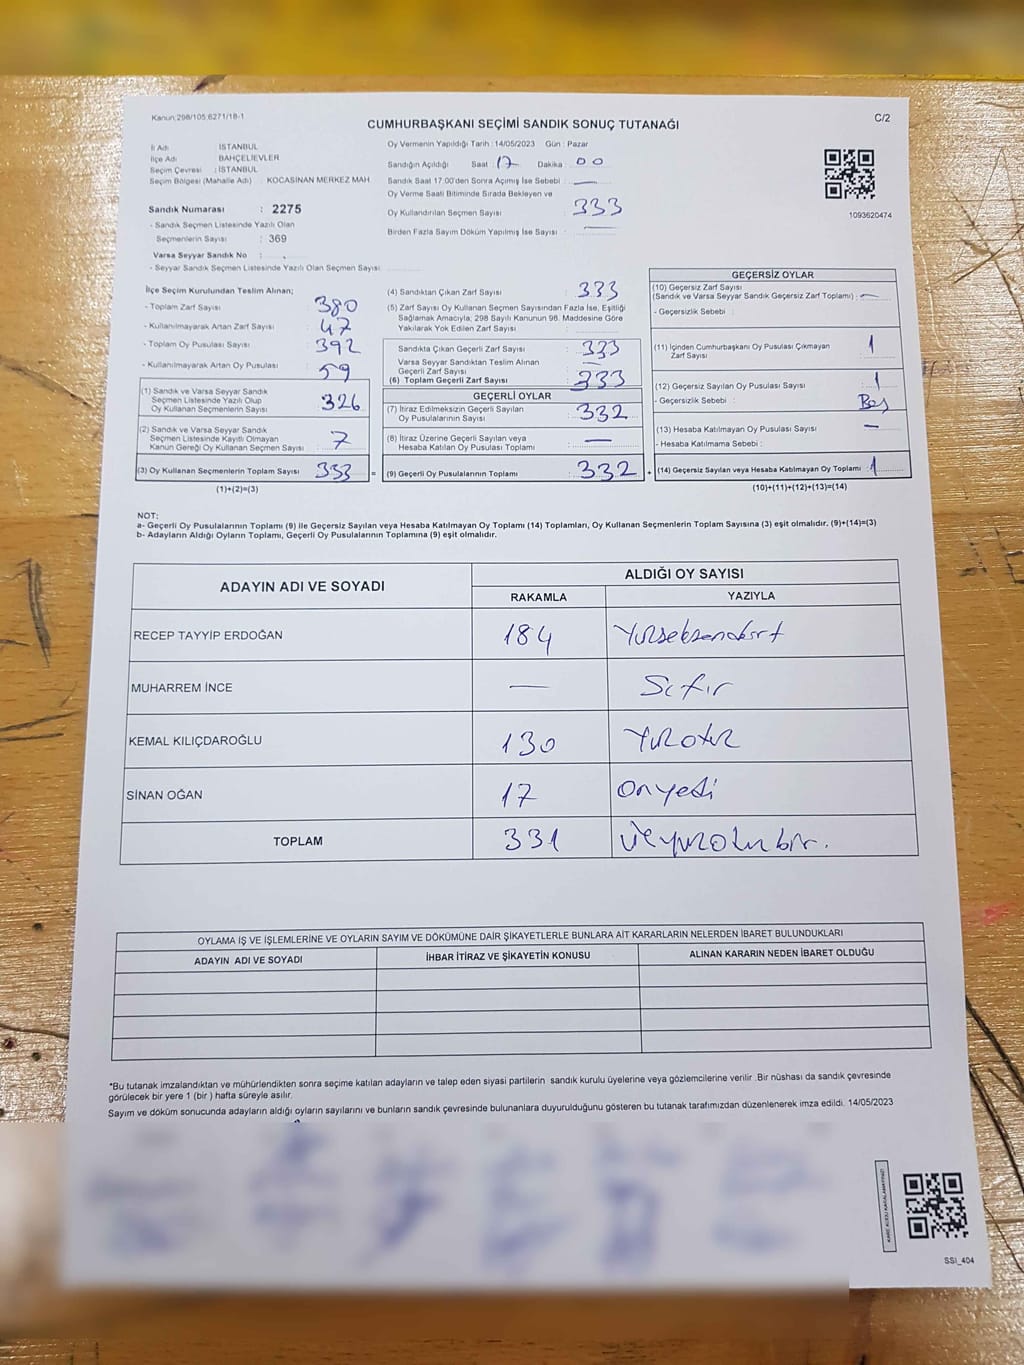 Kanun:298/105;6271/18-1
C/2
CUMHURBAŞKANI SEÇİMİ SANDIK SONUÇ TUTANAĞI
İl Adı : İSTANBUL
İlçe Adı : BAHÇELİEVLER
Seçim Çevresi : İSTANBUL
Seçim Bölgesi (Mahalle Adı) : KOCASİNAN MERKEZ MAH
Sandık Numarası : 2275
- Sandık Seçmen Listesinde Yazılı Olan
Seçmenlerin Sayısı : 369
Varsa Seyyar Sandık No :
- Seyyar Sandık Seçmen Listesinde Yazılı Olan Seçmen Sayısı:
Oy Vermenin Yapıldığı Tarih : 14/05/2023 Gün : Pazar
Sandığın Açıldığı Saat : 17 Dakika : 00
Sandık Saat 17:00'den Sonra Açımış İse Sebebi : —
Oy Verme Saati Bitiminde Sırada Bekleyen ve
Oy Kullandırılan Seçmen Sayısı : 333
Birden Fazla Sayım Döküm Yapılmış İse Sayısı : —
1093620474
İlçe Seçim Kurulundan Teslim Alınan;
- Toplam Zarf Sayısı : 380
- Kullanılmayarak Artan Zarf Sayısı : 47
- Toplam Oy Pusulası Sayısı : 392
- Kullanılmayarak Artan Oy Pusulası : 59
(1) Sandık ve Varsa Seyyar Sandık
Seçmen Listesinde Yazılı Olup
Oy Kullanan Seçmenlerin Sayısı : 326
(2) Sandık ve Varsa Seyyar Sandık
Seçmen Listesinde Kayıtlı Olmayan
Kanun Gereği Oy Kullanan Seçmen Sayısı : 7
(3) Oy Kullanan Seçmenlerin Toplam Sayısı : 333 =
(1)+(2)=(3)
(4) Sandıktan Çıkan Zarf Sayısı : 333
(5) Zarf Sayısı Oy Kullanan Seçmen Sayısından Fazla İse, Eşitliği
Sağlamak Amacıyla; 298 Sayılı Kanunun 98. Maddesine Göre
Yakılarak Yok Edilen Zarf Sayısı :
Sandıkta Çıkan Geçerli Zarf Sayısı : 333
Varsa Seyyar Sandıktan Teslim Alınan
Geçerli Zarf Sayısı : —
(6) Toplam Geçerli Zarf Sayısı : 333
GEÇERLİ OYLAR
(7) İtiraz Edilmeksizin Geçerli Sayılan
Oy Pusulalarının Sayısı : 332
(8) İtiraz Üzerine Geçerli Sayılan veya
Hesaba Katılan Oy Pusulası Toplamı : —
(9) Geçerli Oy Pusulalarının Toplamı : 332 +
GEÇERSİZ OYLAR
(10) Geçersiz Zarf Sayısı
(Sandık ve Varsa Seyyar Sandık Geçersiz Zarf Toplamı) : —
- Geçersizlik Sebebi :
(11) İçinden Cumhurbaşkanı Oy Pusulası Çıkmayan
Zarf Sayısı : 1
(12) Geçersiz Sayılan Oy Pusulası Sayısı : 1
- Geçersizlik Sebebi : Boş
(13) Hesaba Katılmayan Oy Pusulası Sayısı : —
- Hesaba Katılmama Sebebi :
(14) Geçersiz Sayılan veya Hesaba Katılmayan Oy Toplamı : 1
(10)+(11)+(12)+(13)=(14)
NOT:
a- Geçerli Oy Pusulalarının Toplamı (9) ile Geçersiz Sayılan veya Hesaba Katılmayan Oy Toplamı (14) Toplamları, Oy Kullanan Seçmenlerin Toplam Sayısına (3) eşit olmalıdır. (9)+(14)=(3)
b- Adayların Aldığı Oyların Toplamı, Geçerli Oy Pusulalarının Toplamına (9) eşit olmalıdır.
ADAYIN ADI VE SOYADI
ALDIĞI OY SAYISI
RAKAMLA YAZIYLA
RECEP TAYYİP ERDOĞAN 184 Yüzseksendört
MUHARREM İNCE — Sıfır
KEMAL KILIÇDAROĞLU 130 Yüzotuz
SİNAN OĞAN 17 Onyedi
TOPLAM 331 Üçyüzotuzbir.
OYLAMA İŞ VE İŞLEMLERİNE VE OYLARIN SAYIM VE DÖKÜMÜNE DAİR ŞİKAYETLERLE BUNLARA AİT KARARLARIN NELERDEN İBARET BULUNDUKLARI
ADAYIN ADI VE SOYADI İHBAR İTİRAZ VE ŞİKAYETİN KONUSU ALINAN KARARIN NEDEN İBARET OLDUĞU
*Bu tutanak imzalandıktan ve mühürlendikten sonra seçime katılan adayların ve talep eden siyasi partilerin sandık kurulu üyelerine veya gözlemcilerine verilir .Bir nüshası da sandık çevresinde
görülecek bir yere 1 (bir ) hafta süreyle asılır.
Sayım ve döküm sonucunda adayların aldığı oyların sayılarını ve bunların sandık çevresinde bulunanlara duyurulduğunu gösteren bu tutanak tarafımızdan düzenlenerek imza edildi. 14/05/2023
KARE KODU KARALAMAYINIZ!
SSI_404